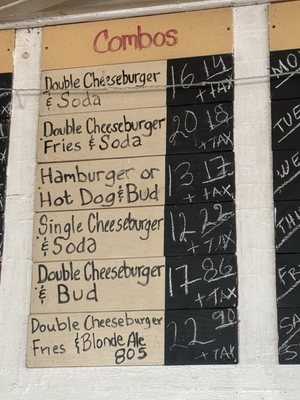 Combos
Double Cheeseburger 16 19
& Soda + TAX
Double Cheeseburger 20 18
Fries & Soda + TAX
Hamburger or 13 17
Hot Dog & Bud + TAX
Single Cheeseburger 12 22
& Soda + TAX
Double Cheeseburger 17 86
& Bud + TAX
Double Cheeseburger 22 90
Fries & Blonde Ale + TAX
805
TUE
FR